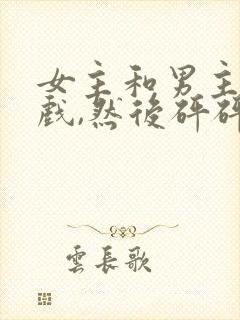 女主和男主
戲,然後砰砰
雲長歌